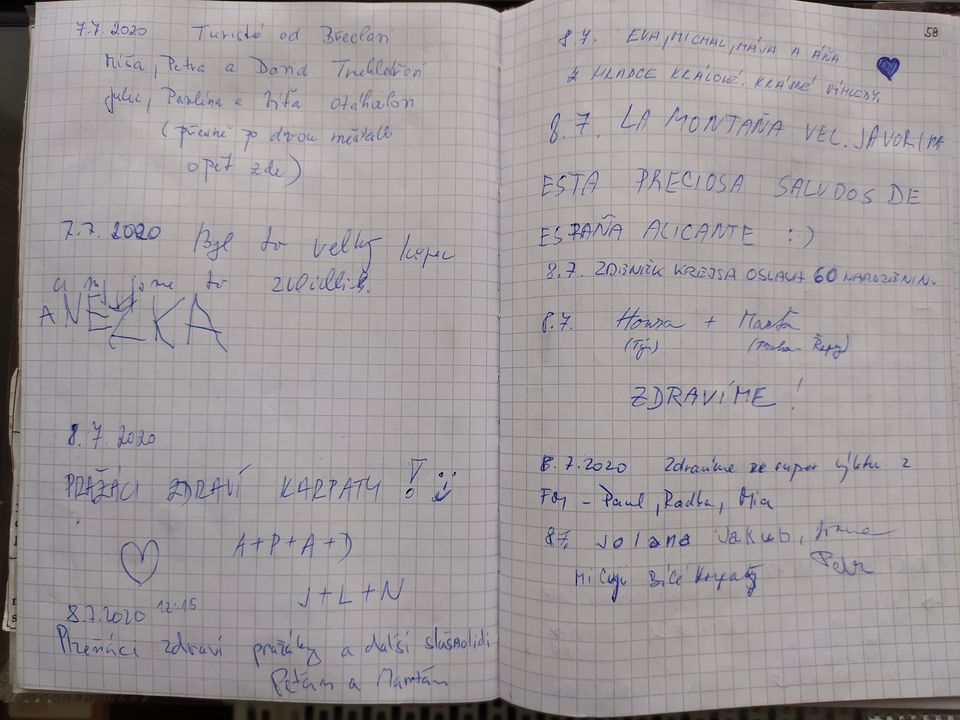 7.7.2020 Turisté od Břeclavi
Míša, Petra a Dana
Julie, Pavlína a Zita
(přesně po dvou
opět zde)
7.7.2020 Byl to velký kopec
a my jsme to zvládli.
ANEŽKA
8.7.2020
PRAŽÁCI ZDRAVÍ KARPATY!
A+P+A+D
J+L+N
8.7.2020 12:15
Plzeňáci zdraví pražáky a další
a
58
8.7. EVA, MICHAL, MÁJA A ÁŇA
Z HRADCE KRÁLOVÉ. KRÁSNÉ VÝHLEDY.
8.7. LA MONTAÑA VEL. JAVORINA
ESTA PRECIOSA SALUDOS DE
ESPAÑA ALICANTE :)
8.7. ZDENĚK KREJSA OSLAVA 60 NAROZENIN.
8.7. Honza + Marta
(Týn) (Praha Řepy)
ZDRAVÍME!
8.7.2020 Zdravíme ze super výletu z
FM - Paul, Radka, Mia
8.7. Jolana Jakub,
Petr
Milují Bílé Karpaty